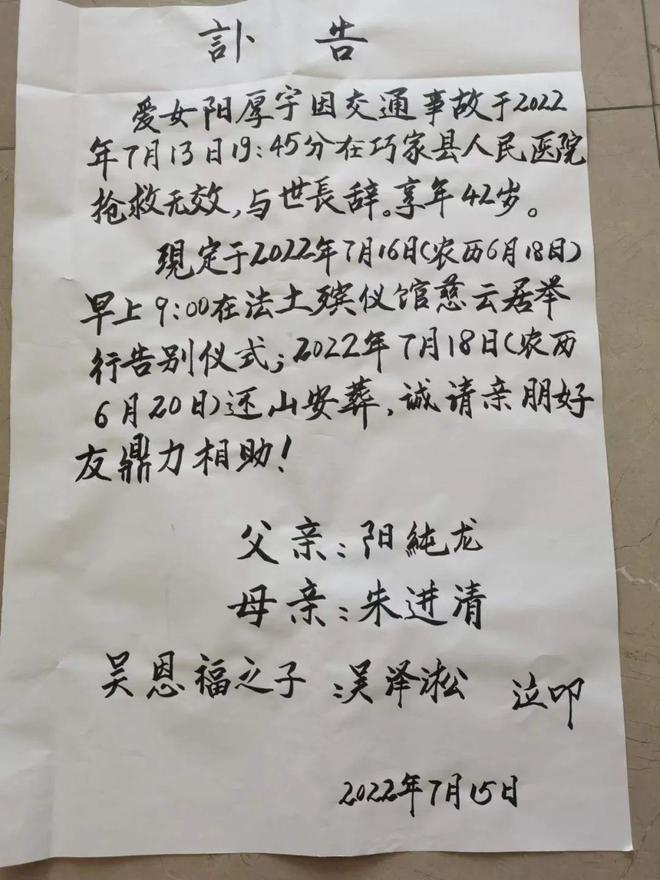 訃 告
爱女阳厚宇因交通事故于2022
年7月13日19:45分在巧家县人民医院
抢救无效,与世長辞。享年42岁。
現定于2022年7月16日(农历6月18日)
早上9:00在法土殡仪馆慈云居举
行告别仪式;2022年7月18日(农历
6月20日)还山安葬,诚请亲朋好
友鼎力相助!
父亲:阳純龙
母亲:朱进清
吴恩福之子:吴泽淞 泣叩
2022年7月15日